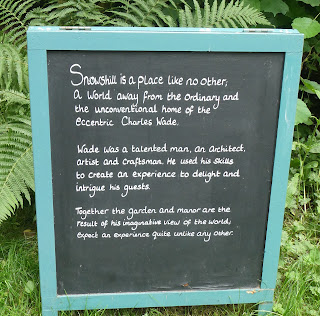 Snowshill is a place like no other;
a world away from the ordinary and
the unconventional home of the
eccentric Charles Wade.
Wade was a talented man, an architect,
artist and craftsman. He used his skills
to create an experience to delight and
intrigue his guests.
Together the garden and manor are the
result of his imaginative view of the world,
expect an experience quite unlike any other.